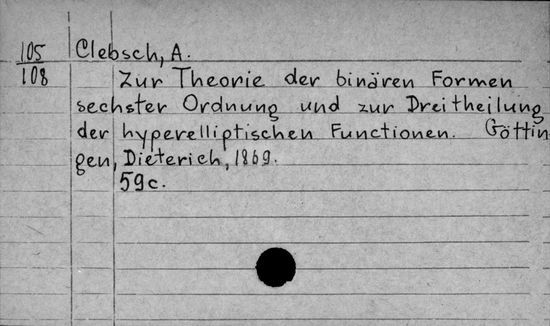 105 Clebsch, A.
108 Zur Theorie der binären Formen
sechster Ordnung und zur Dreitheilung
der hyperelliptischen Functionen. Göttin
gen, Dieterich, 1869.
59c.